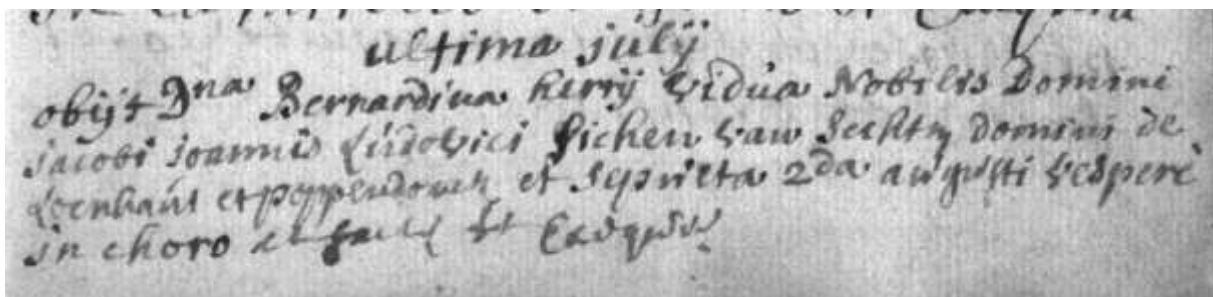 ultima julij
obijt Dna Bernardina herrij vidua Nobilis Domini
jacobi joannis Ludovici sichen van sechten domini de
Loenhaut et poppendonck et sepulta 2da augusti vespere
in choro et